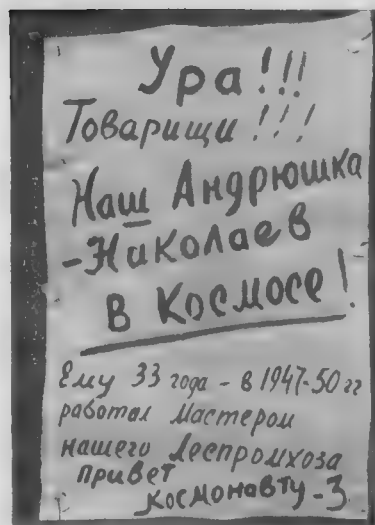 Ура!!!
Товарищи!!!
Наш Андрюшка
-Николаев
в Космосе!
Ему 33 года - в 1947-50 гг
работал Мастером
нашего Леспромхоза
привет
космонавту-3